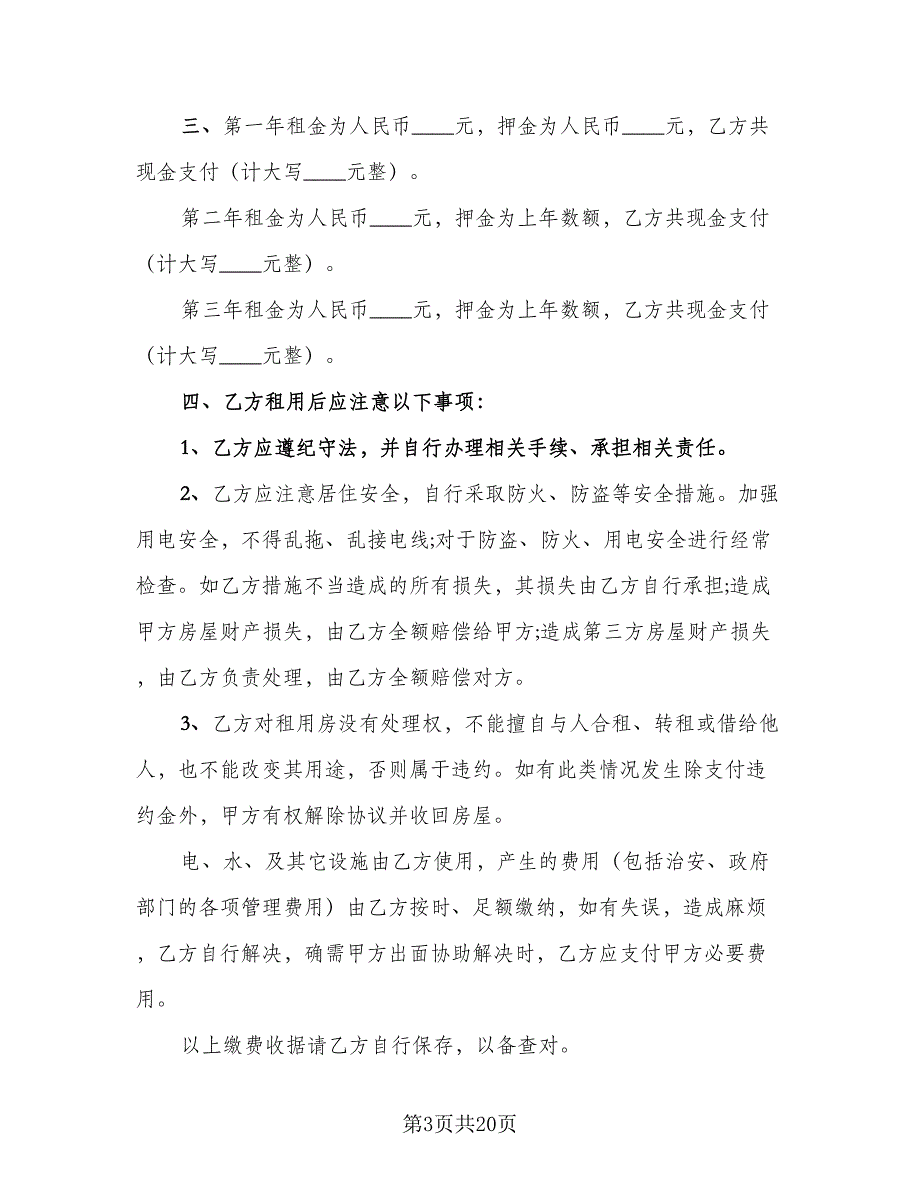 三、第一年租金为人民币____元，押金为人民币____元，乙方共
现金支付（计大写____元整）。
第二年租金为人民币____元，押金为上年数额，乙方共现金支付
（计大写____元整）。
第三年租金为人民币____元，押金为上年数额，乙方共现金支付
（计大写____元整）。
四、乙方租用后应注意以下事项：
1、乙方应遵纪守法，并自行办理相关手续、承担相关责任。
2、乙方应注意居住安全，自行采取防火、防盗等安全措施。加强
用电安全，不得乱拖、乱接电线;对于防盗、防火、用电安全进行经常
检查。如乙方措施不当造成的所有损失，其损失由乙方自行承担;造成
甲方房屋财产损失，由乙方全额赔偿给甲方;造成第三方房屋财产损失
，由乙方负责处理，由乙方全额赔偿对方。
3、乙方对租用房没有处理权，不能擅自与人合租、转租或借给他
人，也不能改变其用途，否则属于违约。如有此类情况发生除支付违
约金外，甲方有权解除协议并收回房屋。
电、水、及其它设施由乙方使用，产生的费用（包括治安、政府
部门的各项管理费用）由乙方按时、足额缴纳，如有失误，造成麻烦
，乙方自行解决，确需甲方出面协助解决时，乙方应支付甲方必要费
用。
以上缴费收据请乙方自行保存，以备查对。
第3页共20页